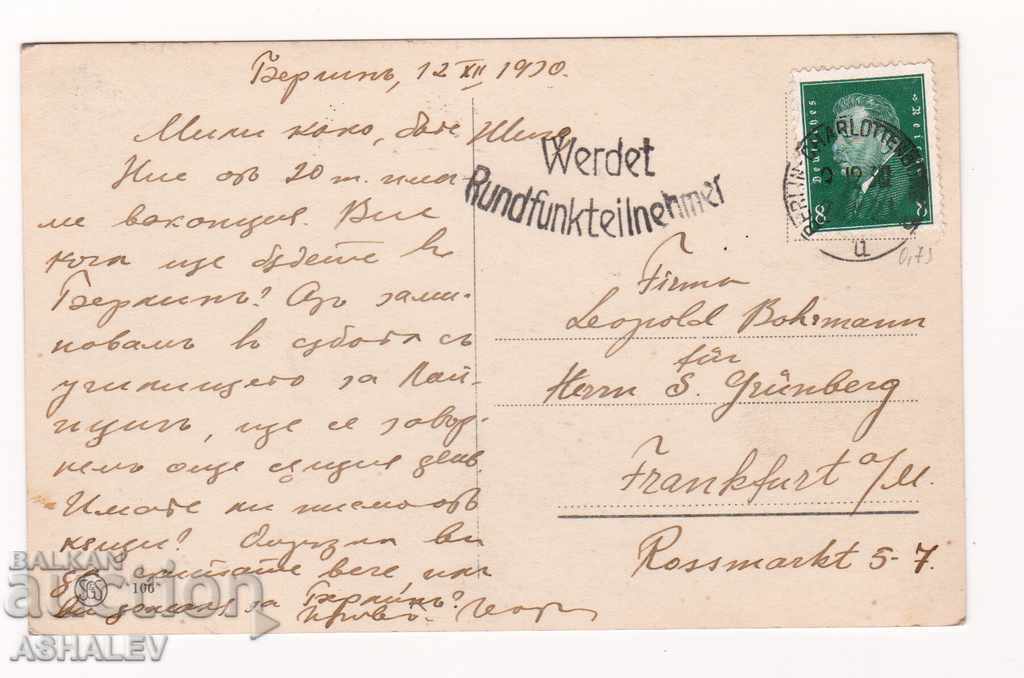 Берлинъ, 12 XII 1930.
Мили како, бате Жиго,
Ние отъ 20 т. има-
ме ваканция. Вие
кога ще бѫдете въ
Берлинъ? Азъ зами-
навамъ въ събота съ
училището за Лай-
пцигъ, ще се завър-
немъ още сѫщия день.
Имате ли писмо отъ
кѫщи?
ви
чакате вече, или
за Берлинъ?
Werdet
Rundfunkteilnehmer
BERLIN-CHARLOTTENBURG
Deutsches Reich
8 8
a
0,75
Firma
Leopold Bohrmann
für
Herrn S. Grünberg
Frankfurt a/M.
Rossmarkt 5-7.
"106"
BALKAN
auction
ASHALEV